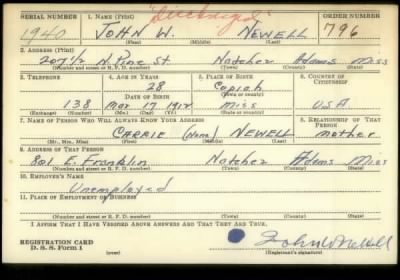 "Discharged"
SERIAL NUMBER 1. NAME (Print) ORDER NUMBER
1940 JOHN W. NEWELL 796
(First) (Middle) (Last)
2. ADDRESS (Print)
207½ N. Pine St Natchez Adams Miss
(Number and street or R. F. D. number) (Town) (County) (State)
3. TELEPHONE 4. AGE IN YEARS 5. PLACE OF BIRTH 6. COUNTRY OF CITIZENSHIP
28 Copiah
DATE OF BIRTH (Town or county)
138 Mar 17 1912 Miss USA
(Exchange) (Number) (Mo.) (Day) (Yr.) (State or country)
7. NAME OF PERSON WHO WILL ALWAYS KNOW YOUR ADDRESS 8. RELATIONSHIP OF THAT PERSON
CARRIE (None) NEWELL mother
(Mr., Mrs., Miss) (First) (Middle) (Last)
9. ADDRESS OF THAT PERSON
801 E. Franklin Natchez Adams Miss
(Number and street or R. F. D. number) (Town) (County) (State)
10. EMPLOYER'S NAME
Unemployed
11. PLACE OF EMPLOYMENT OR BUSINESS
(Number and street or R. F. D. number) (Town) (County) (State)
I AFFIRM THAT I HAVE VERIFIED ABOVE ANSWERS AND THAT THEY ARE TRUE.
REGISTRATION CARD John W Newell
D. S. S. Form 1 (over) (Registrant's signature)